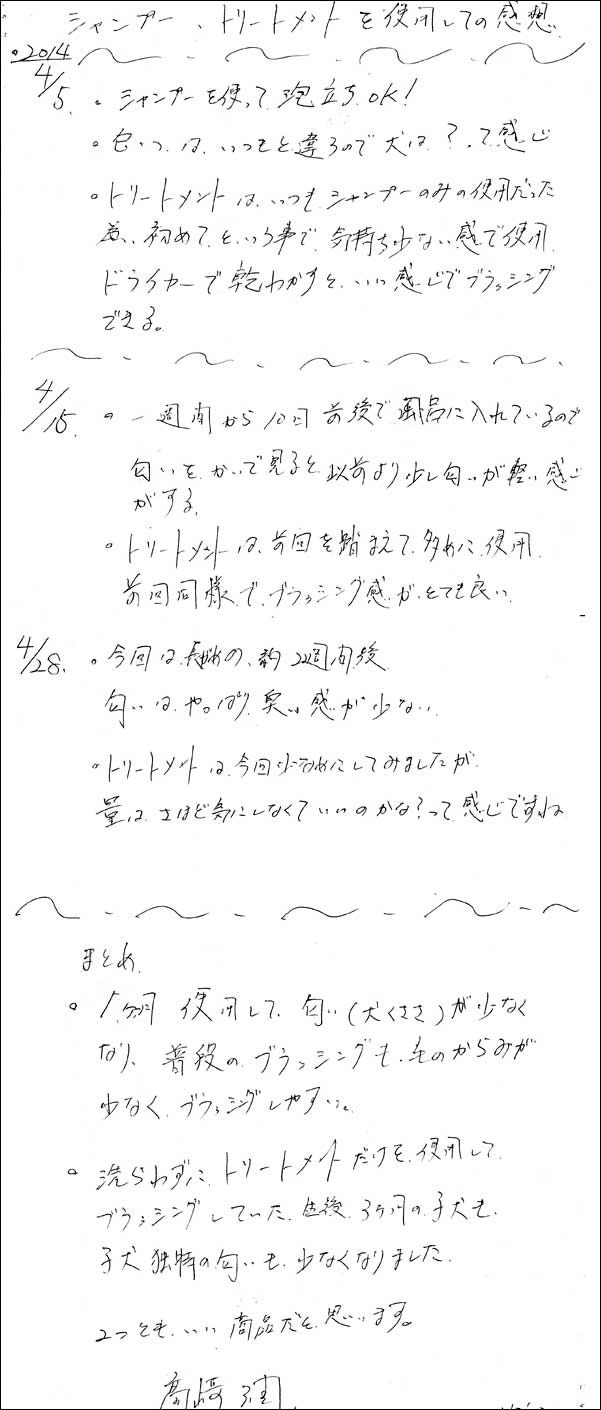 シャンプー、トリートメントを使用しての感想
。2014
4/5. 。シャンプーを使って泡立ちOK!
。匂いは、いつもと違うので犬は?って感じ
。トリートメントは、いつもシャンプーのみの使用だった
為、初めてという事で、気持ち少ない感で使用
ドライヤーで乾わかすと、いい感じでブラッシング
できる。
4/15. 。一週間から10日前後で風呂に入れているので
匂いをかいで見ると以前より少し匂いが軽い感じ
がする。
。トリートメントは、前回を踏まえて多めに使用
前回同様で、ブラッシング感が、とても良い
4/28. 。今回は長めの、約2週間後
匂いは、やっぱり、臭い感が少ない
。トリートメントは、今回少なめにしてみましたが
量は、さほど気にしなくていいのかな?って感じですね
まとめ
。1ヶ月使用して、匂い(犬くささ)が少なく
なり、普段のブラッシングも、毛のからみが
少なく、ブラッシングしやすい。
。洗らわずに、トリートメントだけを、使用して
ブラッシングしていた、生後、3ヶ月の子犬も、
子犬独特の匂いも、少なくなりました。
2つとも、いい商品だと、思います。
高﨑